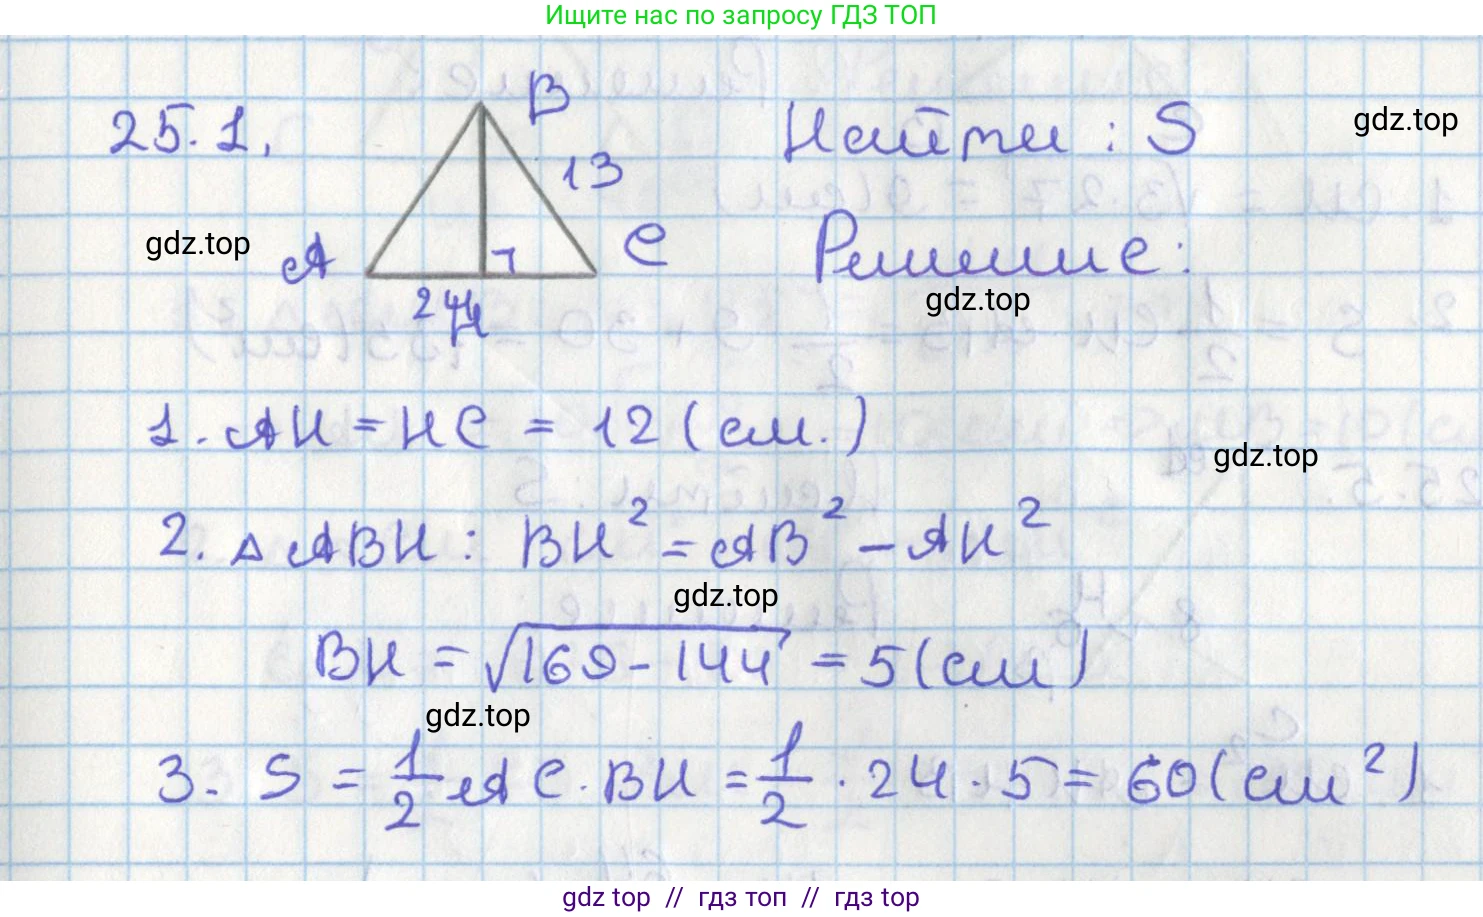 Ищите нас по запросу ГДЗ ТОП
25.1.
B
13
A
C
24
H
Найти : S
gdz.top
gdz.top
Решение:
gdz.top
1. AH = HC = 12 (см.)
gdz.top
2. △ABH : BH² = AB² − AH²
gdz.top
BH = √169 - 144 = 5 (см)
gdz.top
3. S = 1/2 AC · BH = 1/2 · 24 · 5 = 60 (см²)
gdz top // гдз топ // гдз top